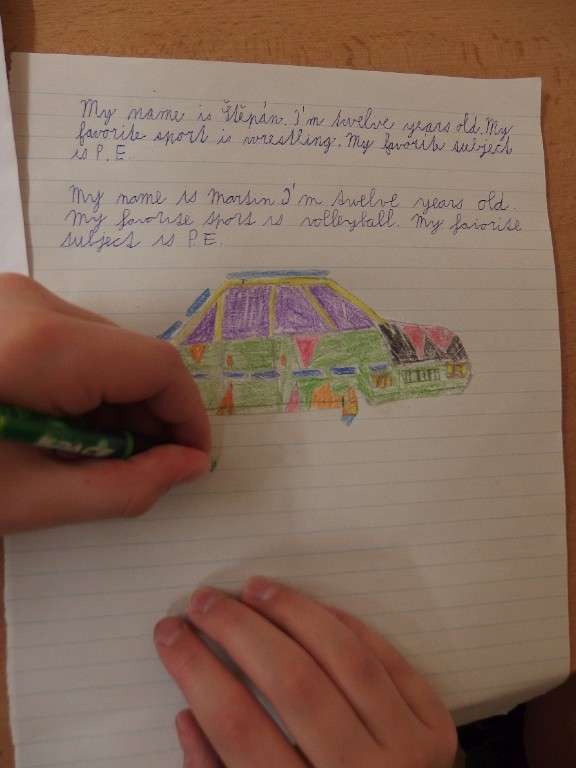 My name is Štěpán. I'm twelve years old. My
favorite sport is wrestling. My favorite subject
is P.E.
My name is Martin. I'm twelve years old.
My favorite sport is volleyball. My favorite
subject is P.E.